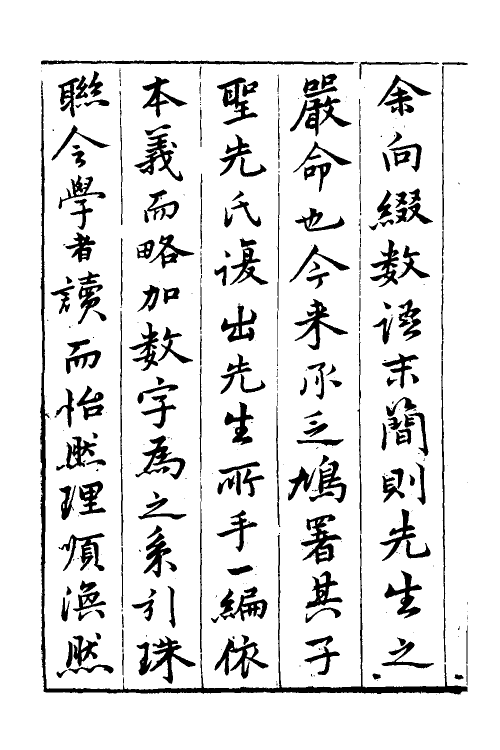 余向綴数语末簡則先生之
嚴命也今来承乏鳩署其子
聖先氏復出先生所手一編依
本義而略加数字為之系引珠
聯令學者讀而怡然理順渙然